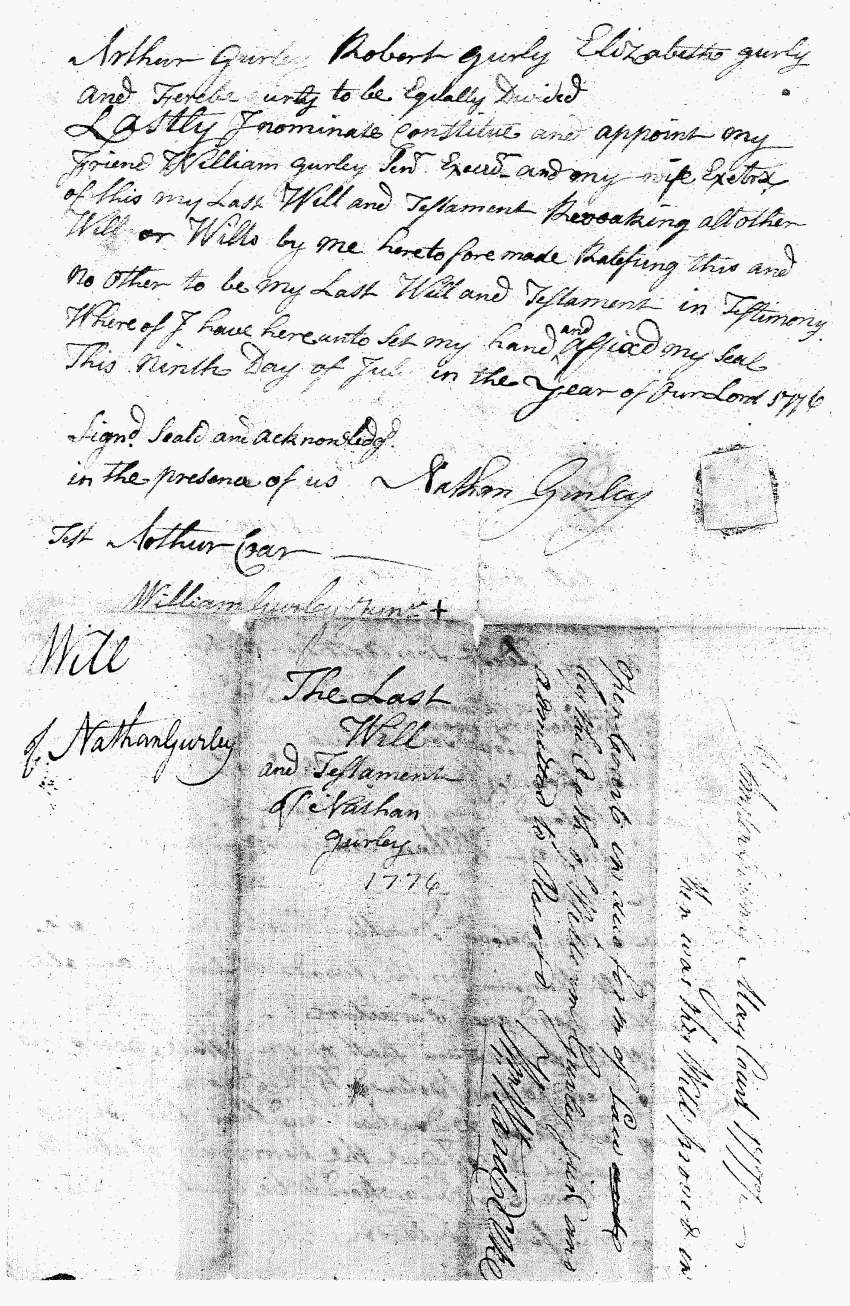 Arthur Gurley Robert gurly Elizabeth gurly
and Ferebe gurly to be Equally Divided
Lastly I nominate Constitue and appoint my
Friend William gurley Senr. Execr. and my wife Exetrx
of this my Last Will and Testament Revoaking all other
Will or Wills by me heretofore made Ratefiing this and
no other to be my Last Will and Testament in Testimony
Where of I have here unto Set my hand and affixed my Seal
This Ninth Day of Jul in the Year of Our Lord 1776
Signd. Seald and acknowledgd.
in the presence of us Nathan Gurley
Test Arthur Coar
William Gurley Junr. +
Will
of Nathan Gurley
The Last
Will
and Testament
of Nathan
gurley
1776
May Court 1777
then was this Will proved in
open Court in due form of Law and
by the Oath of William Gurley jun and
admitted to Record